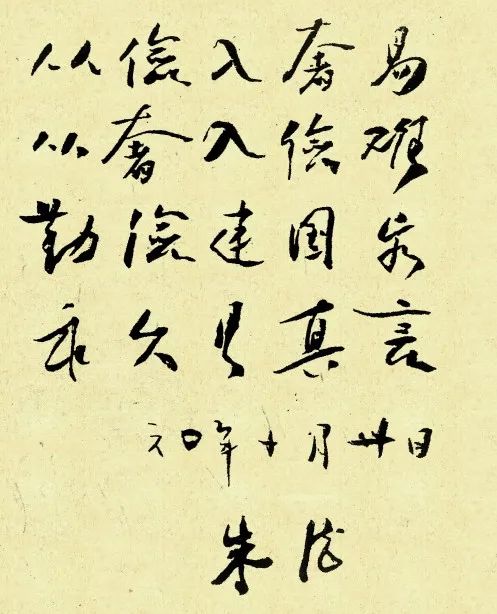 从俭入奢易
从奢入俭难
勤俭建国家
永久是真言
六〇年十月卅日
朱德